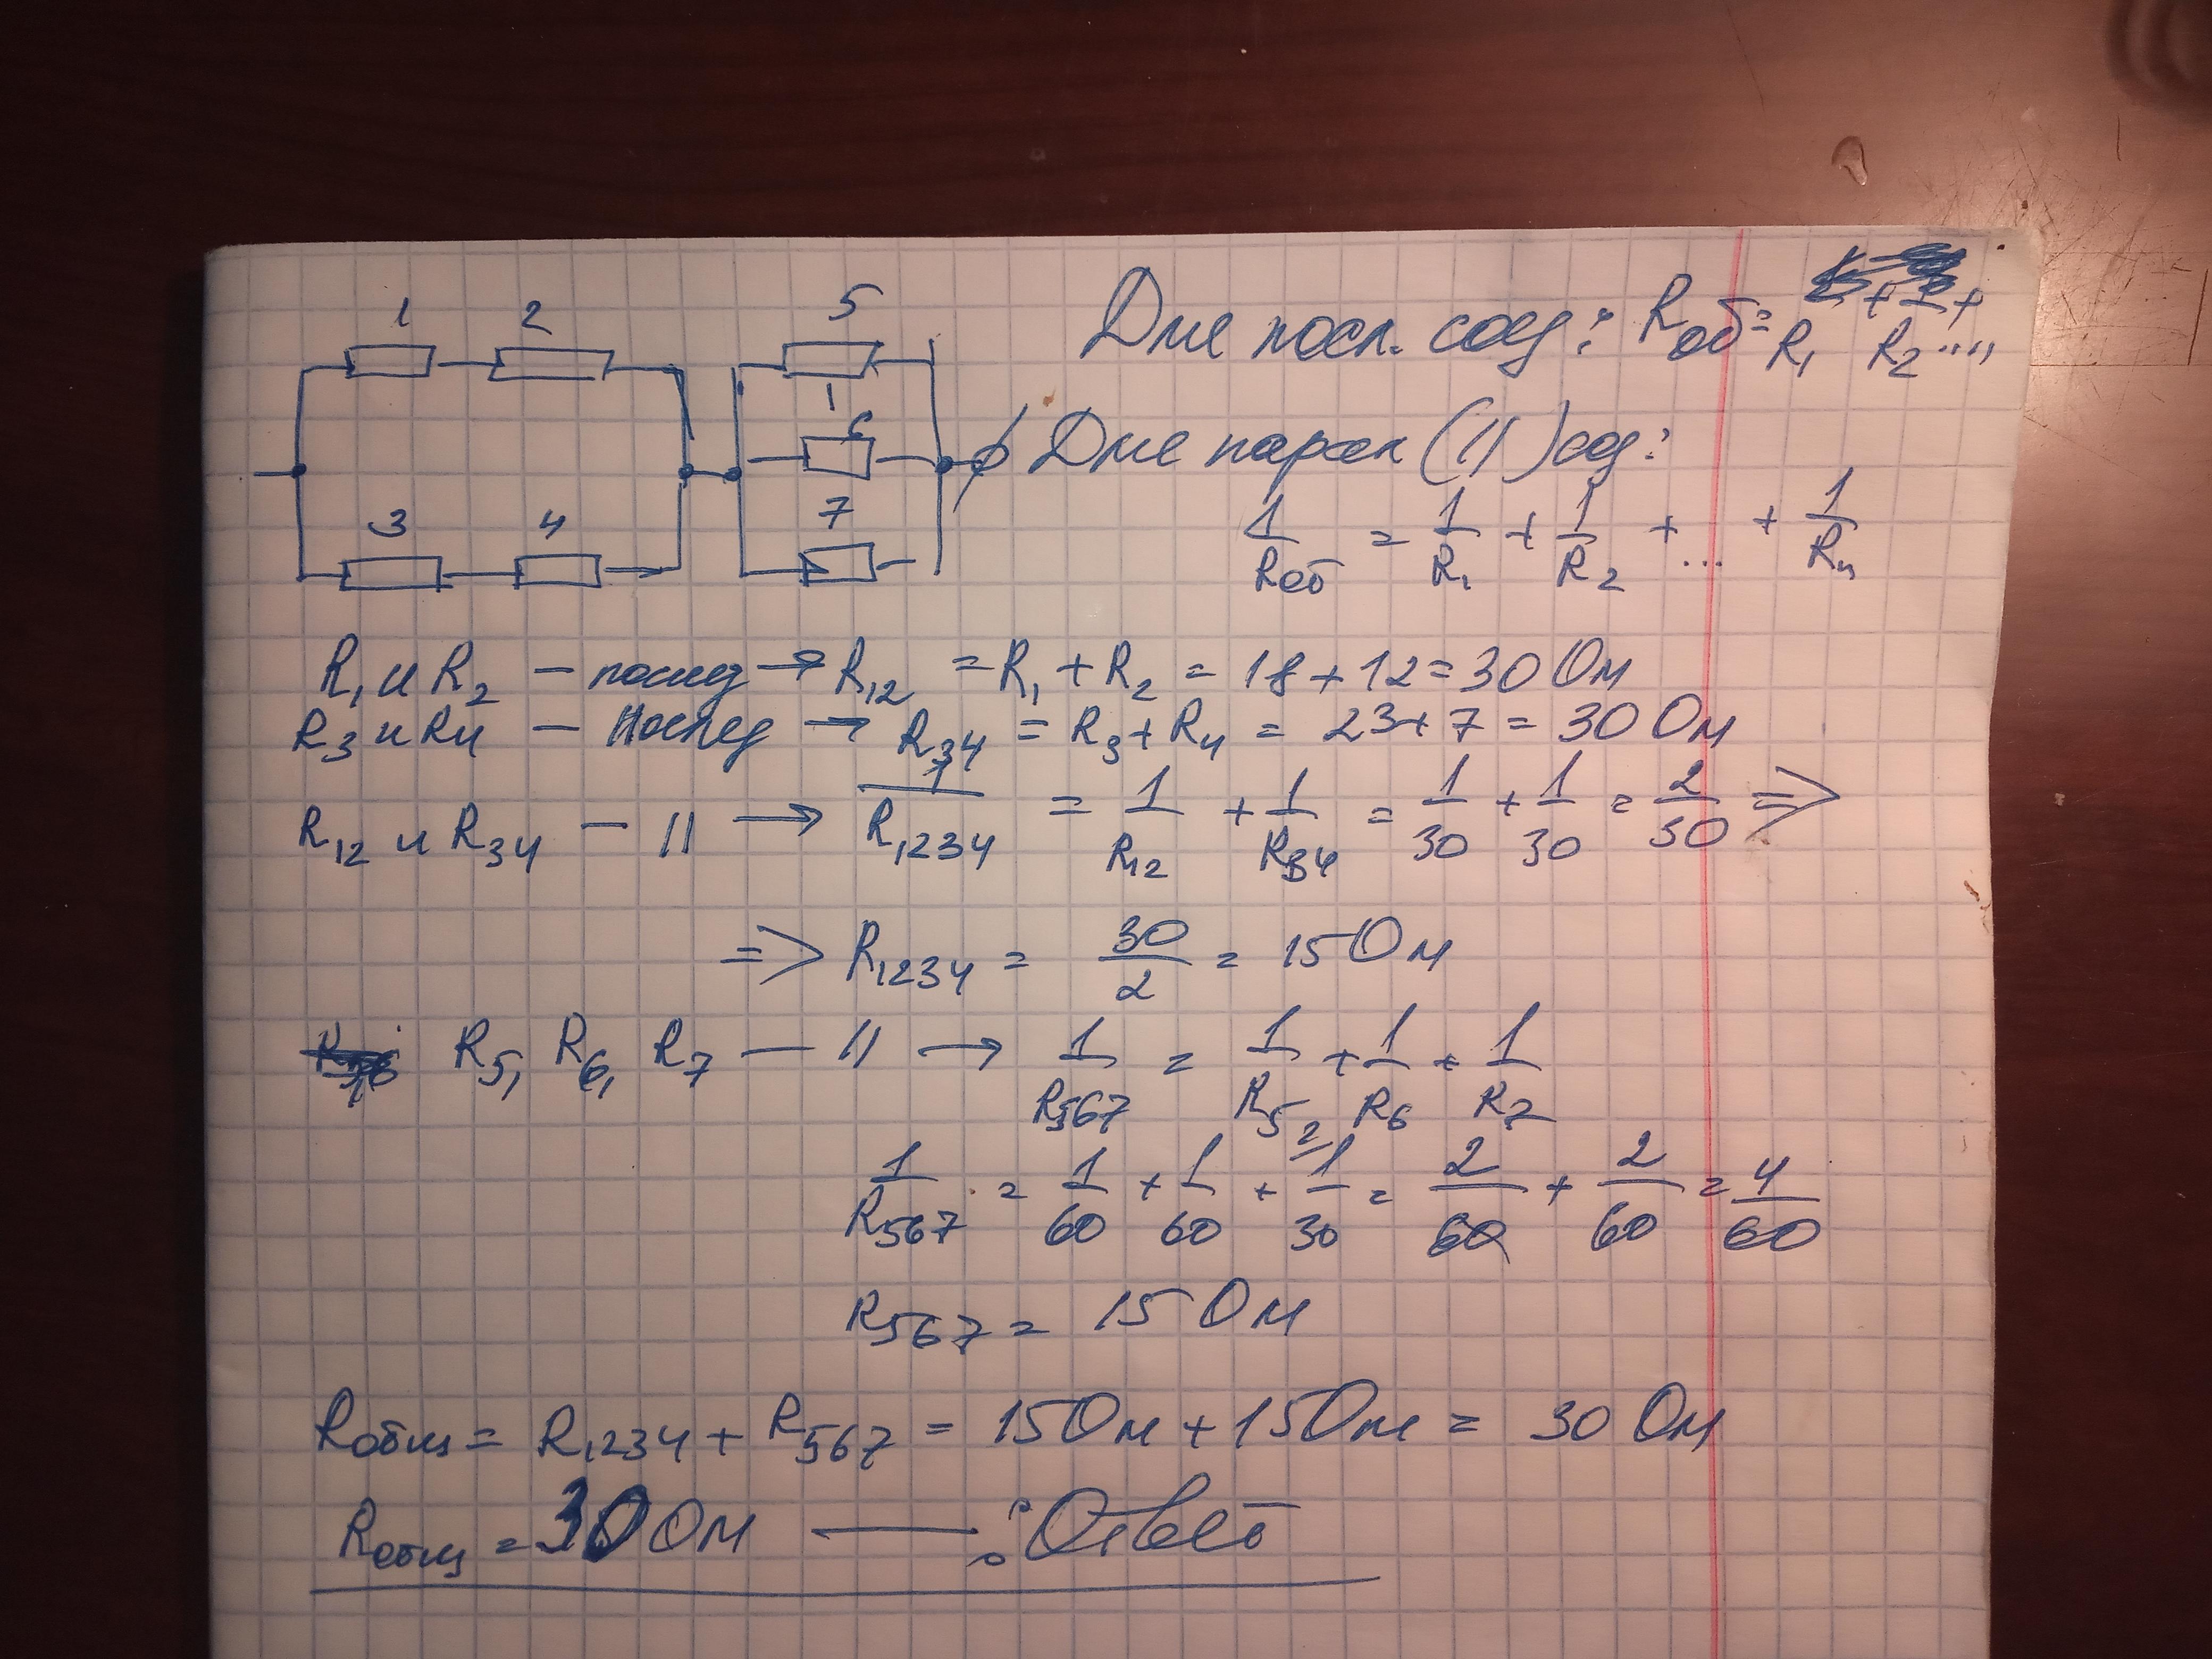 1 2 5
1
6
3 4 7
Для посл. соед: Rоб = R₁ + R₂ + ....
Для парал (||) соед:
1/Rоб = 1/R₁ + 1/R₂ + ... + 1/Rн
R₁ и R₂ — послед → R₁₂ = R₁ + R₂ = 18 + 12 = 30 Ом
R₃ и R₄ — послед → R₃₄ = R₃ + R₄ = 23 + 7 = 30 Ом
R₁₂ и R₃₄ — || → 1/R₁₂₃₄ = 1/R₁₂ + 1/R₃₄ = 1/30 + 1/30 = 2/30 =>
=> R₁₂₃₄ = 30/2 = 15 Ом
R₅, R₆, R₇ — || → 1/R₅₆₇ = 1/R₅ + 1/R₆ + 1/R₇
1/R₅₆₇ = 1/60 + 1/60 + 1/30 = 2/60 + 2/60 = 4/60
R₅₆₇ = 15 Ом
Rобщ = R₁₂₃₄ + R₅₆₇ = 15 Ом + 15 Ом = 30 Ом
Rобщ = 30 Ом — : Ответ